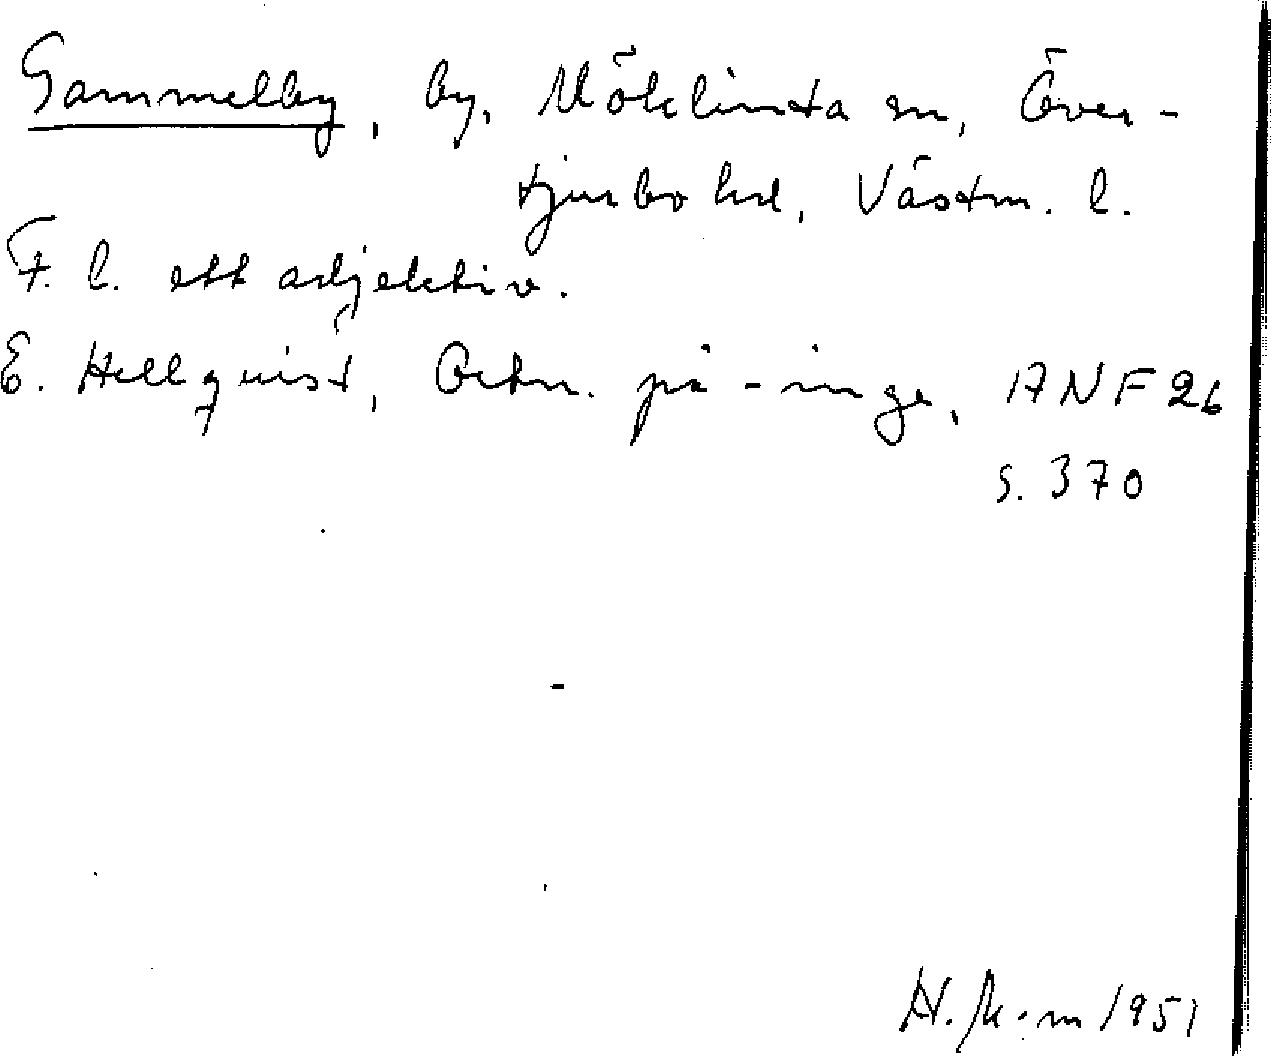 Gammelby, by, Möklinta sn, Över-
tjurbo hd, Västm. l.
F. l. ett adjektiv.
E. Hellquist, Ortn. på -inge, ANF 26
s. 370
1951